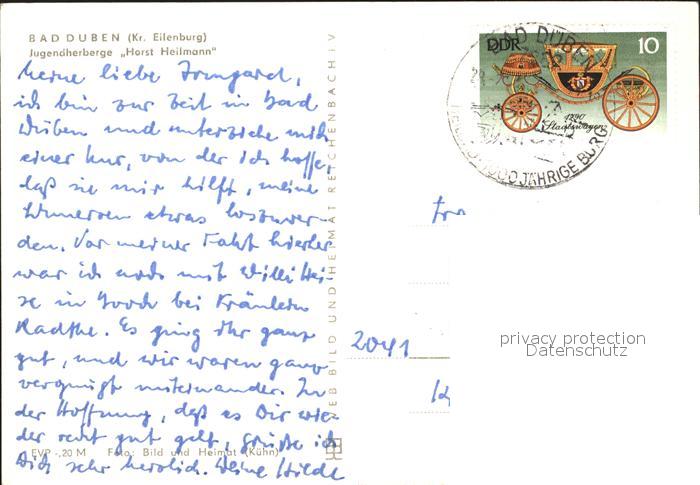 BAD DÜBEN (Kr. Eilenburg)
Jugendherberge „Horst Heilmann"
Meine liebe Irmgard,
ich bin zur Zeit in Bad
Düben und unterziehe mich
einer Kur, von der ich hoffe,
daß sie mir hilft, meine
Schmerzen etwas loszuwer-
den. Vor meiner Fahrt hierher
war ich noch mit Willi
se in bei Fräulein
Radtke. Es ging ihr ganz
gut, und wir waren ganz
vergnügt miteinander. In
der Hoffnung, daß es Dir wie-
der recht gut geht, grüße ich
Dich sehr herzlich. Deine Hilde
EVP -,20 M Foto: Bild und Heimat (Kühn)
VEB BILD UND HEIMAT REICHENBACH IV
DDR
10
1790
Staatswagen
BAD DÜBEN
1000 JÄHRIGE BURG
2041
privacy protection
Datenschutz